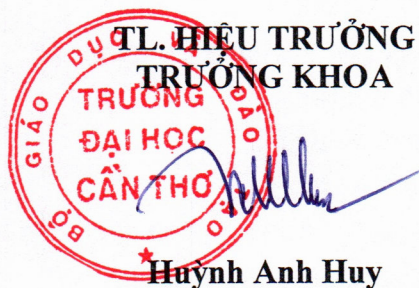 TL. HIỆU TRƯỞNG
TRƯỞNG KHOA
BỘ GIÁO DỤC VÀ ĐÀO TẠO
TRƯỜNG
ĐẠI HỌC
CẦN THƠ
Huỳnh Anh Huy